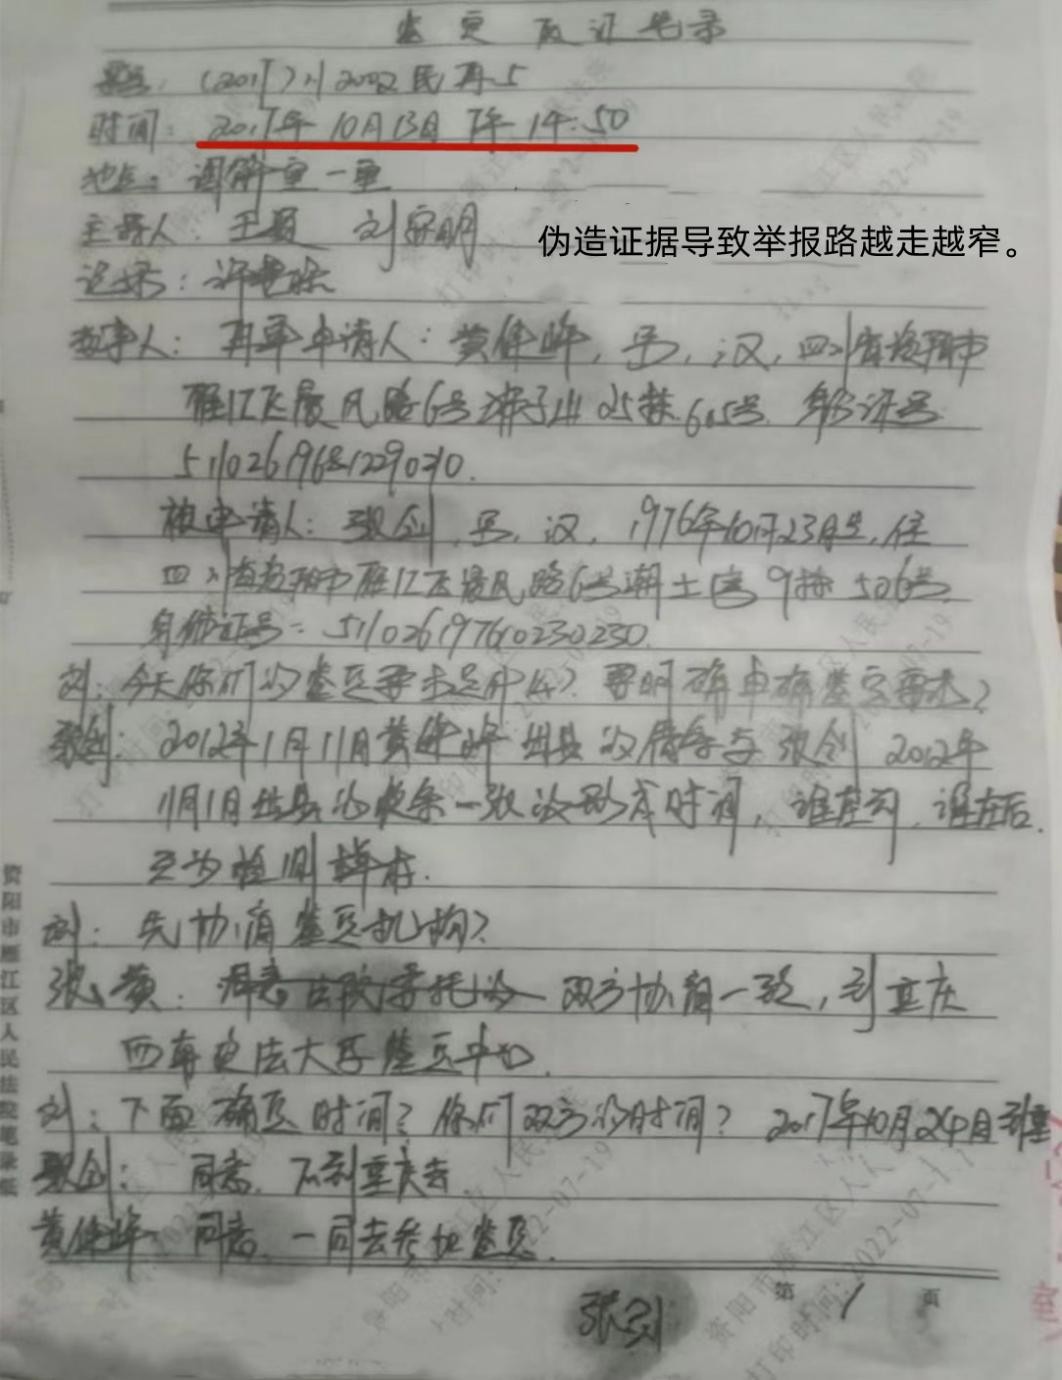 鉴定取证笔录
案号：(2017)川2002民再5
时间：2017年10月13日下午14:50
地点：调解室一室
主持人：王 刘宗明
伪造证据导致举报路越走越窄。
记录：许
当事人：再审申请人：黄，男，汉，四川省资阳市
雁江区晨风路6号狮子山25栋605号 身份证号
511026196812290310.
被申请人：张剑，男，汉，1976年10月23日生，住
四川省资阳市雁江区晨风路6号 9栋506号
身份证号：511026197610230230.
刘：今天你们的鉴定要求是什么？要明确申请鉴定要求？
张剑：2012年1月11日黄 出具的借条与张剑2012年
11月1日出具的收条一张的形成时间，谁在前，谁在后.
互为检测样本.
刘：先协商鉴定机构？
张、黄：双方协商一致，到重庆
西南政法大学鉴定中心.
刘：下面确定时间？你们双方的时间？2017年10月24日到重
张剑：同意. 到重庆去
黄 同意，一同去参加鉴定.
张剑
第 1 页
资阳市雁江区人民法院笔录纸
资阳市雁江区人民法院
打印时间：2022-07-19